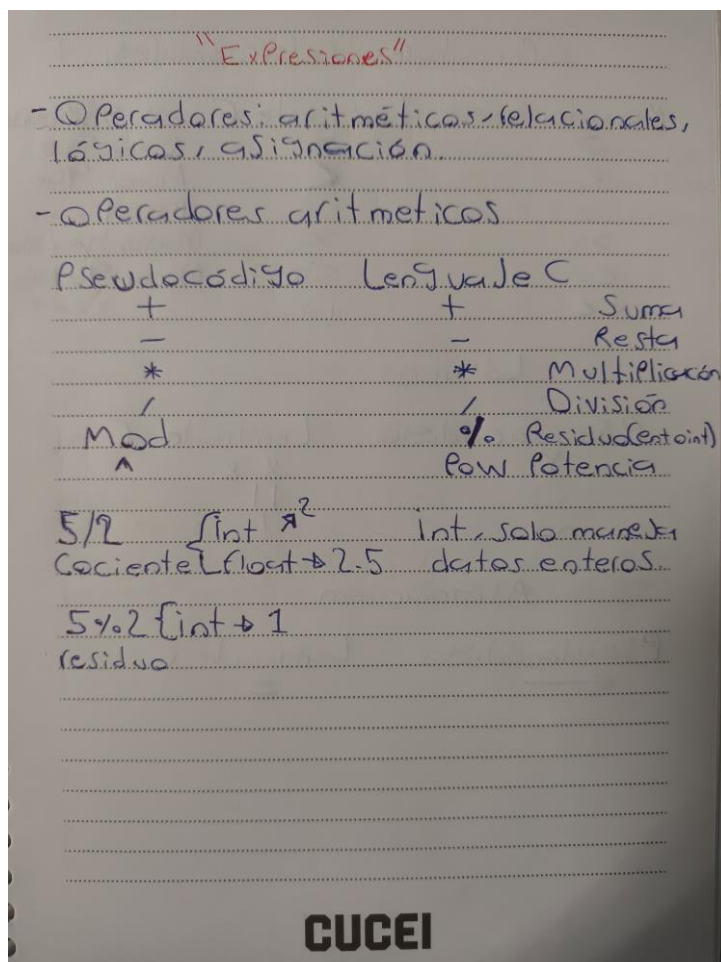 "Expresiones"
- Operadores: aritméticos, relacionales,
lógicos, asignación.
- Operadores aritmeticos
Pseudocódigo Lenguaje C
+ + Suma
- - Resta
* * Multiplicación
/ / División
Mod % Residuo(ent o int)
^ Pow Potencia
5/2 { int → 2 int, solo maneja
Cociente float → 2.5 datos enteros
5%2 { int → 1
residuo
CUCEI